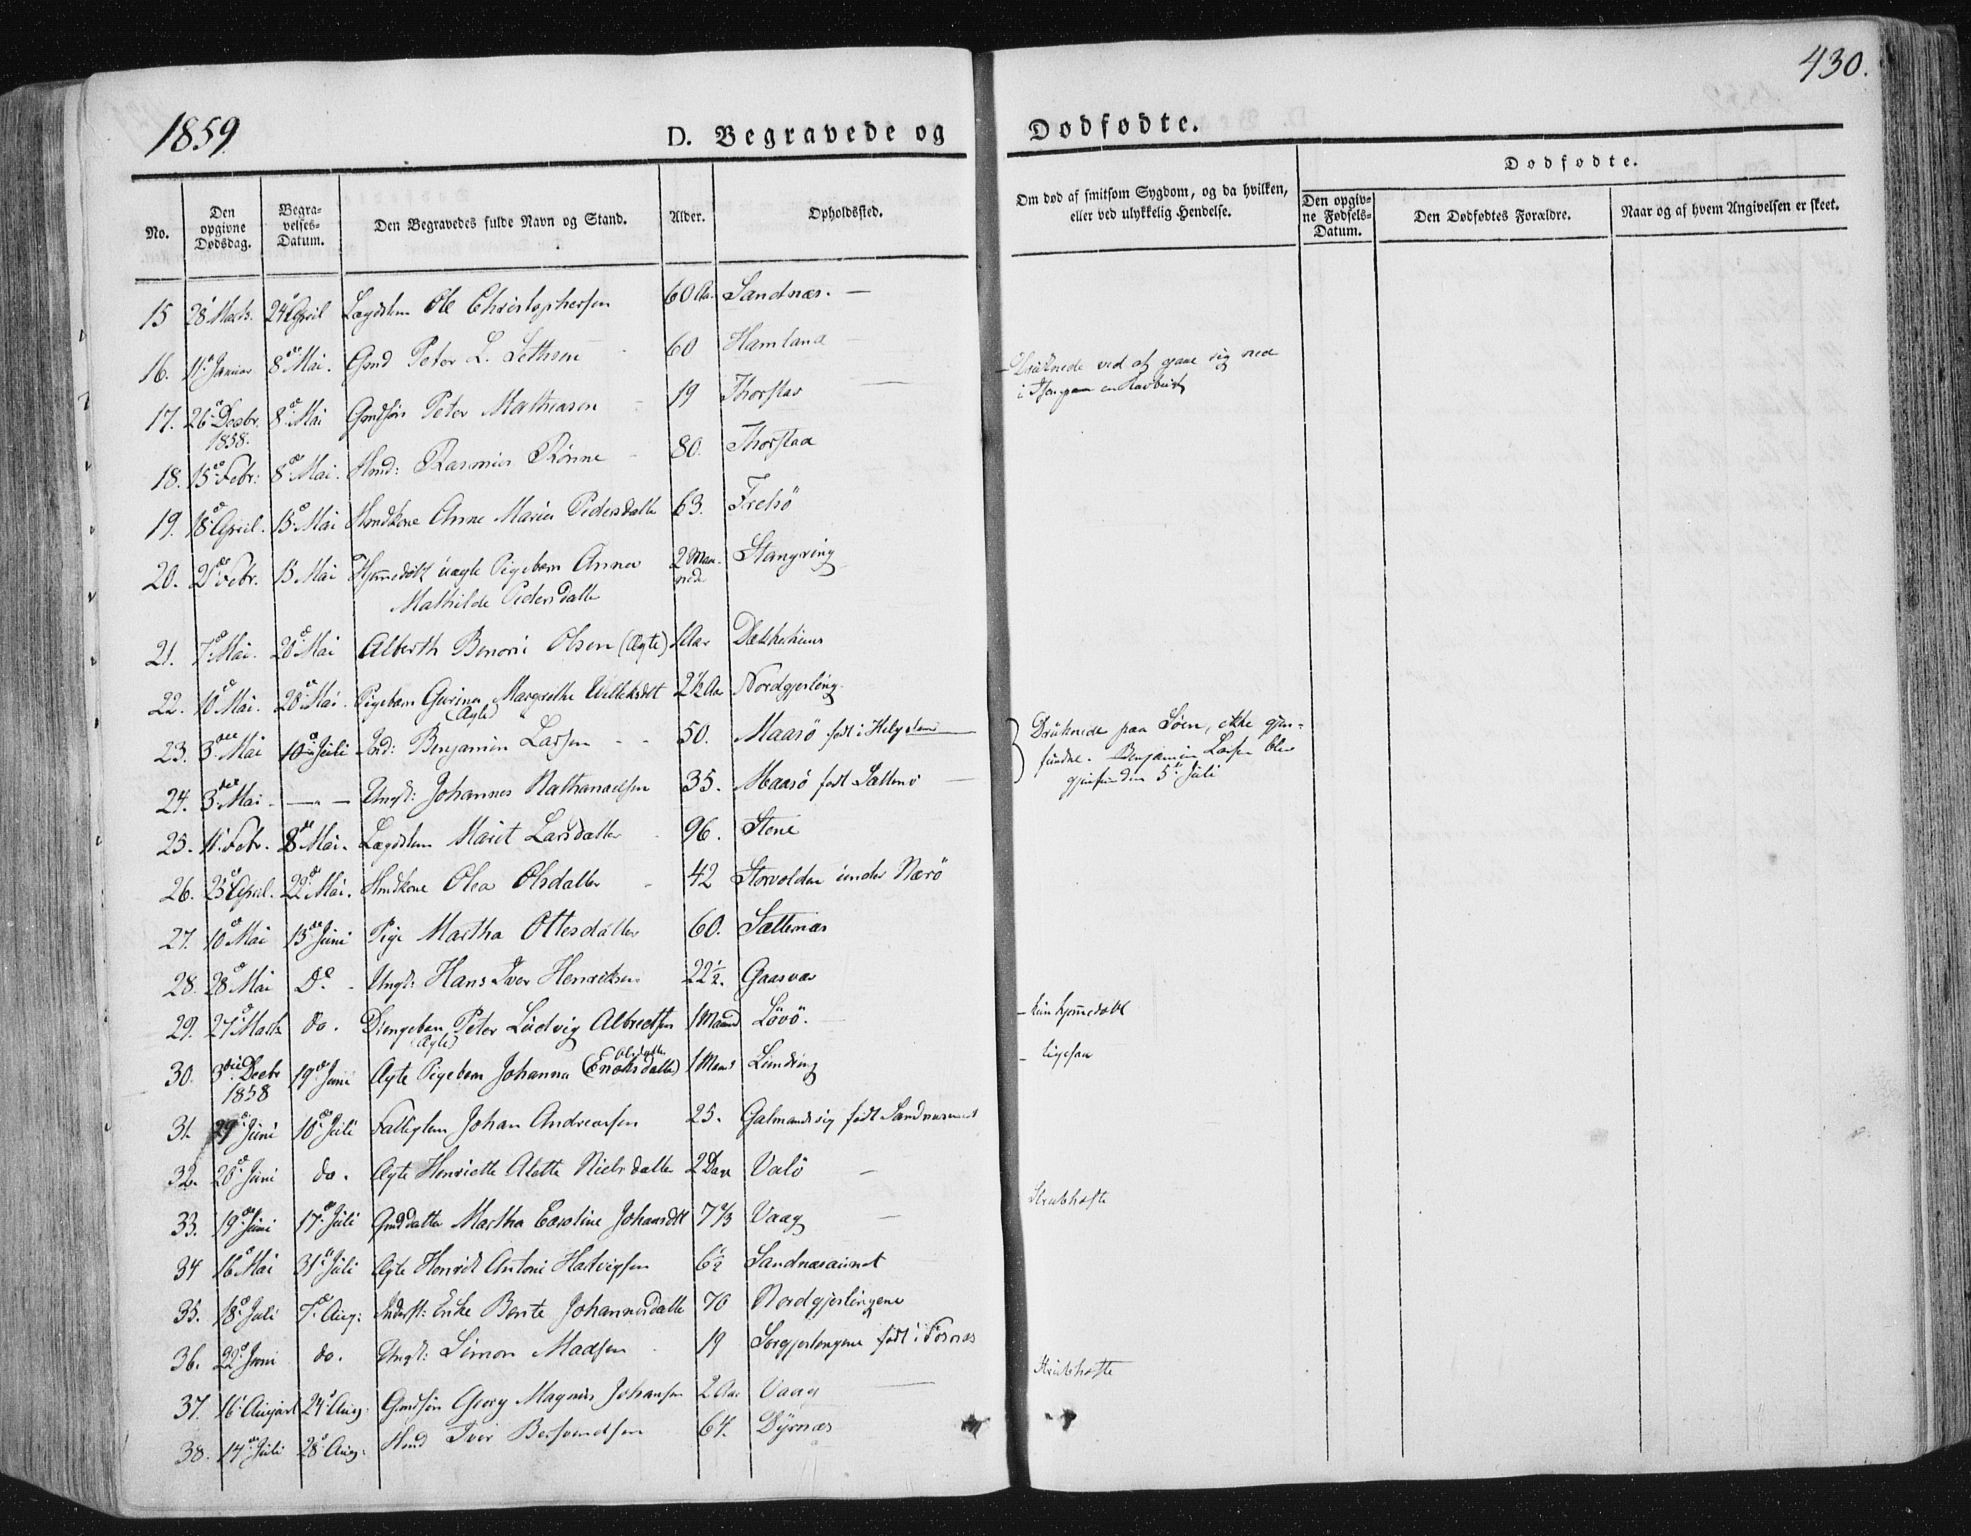 430.
1859
D. Begravede og Dødfødte.
No.
Den opgivne Dødsdag.
Begravelses-Datum.
Den Begravedes fulde Navn og Stand.
Alder.
Opholdssted.
Om død af smitsom Sygdom, og da hvilken, eller ved ulykkelig Hendelse.
Dødfødte.
Den opgivne Fødsels-Datum.
Den Dødfødtes Forældre.
Naar og af hvem Angivelsen er skeet.
15 28 Marts. 24 April Lægdslem Ole Christophersen 60 Aar Sandnæs. —
16. 11 Januar 8de Mai. Gmd Peter L. Sethsen 60 Hamland —
Druknede ved at
17. 26 Decbr. 1858. 8de Mai Gmdsøn Peter Mathiasen 19 Thorstad —
18. 15 Febr. 8de Mai. Hmd: Rasmus Rønne 80. Thorstad
19. 18 April. 15 Mai Hmdkone Anne Marie Pedersdatter 63. Frelsö
20. 2de Febr. 15 Mai Hjemmedøbt uægte Pigebarn Anna 2 Maaneder
Mathilde Pedersdatter
21. 7 Mai. 20 Mai Alberth Benoni Olsen (Ægte) 1 Aar
22. 10 Mai. 20 Mai. Pigebarn Gurina Margrethe 2½ Aar Nordgjerling.
(Ægte)
23. 3die Mai 10 Juli Ind: Benjamin Larsen 50. Maasö født i Helgeland
Druknede paa Söen, ikke gjenfundne. Benjamin Larsen blev
gjenfunden 5 Juli
24. 3die Mai — " — Ungk: Johannes Nathanaelsen 35. Maasö født Sættenæs —
25. 11 Febr. 8de Mai. Lægdslem Marit Larsdatter 96. Stene
26. 25 April. 22de Mai. Hmdkone Olea Olsdatter 42 Storvolden under Nærö
27. 10 Mai 13de Juni Pige Martha Ottesdatter 60. Sættenæs
28. 28 Mai Do Ungk: Hans Iver Henriksen 22½. Gaasvær
29. 27 Marts do. Drengebarn Peter Ludvig Albrechtsen 1 Maaned Lövö. —
(Ægte)
– kun hjemmedøbt
30. 3die Decbr 1858 19de Juni Ægte Pigebarn Johanna (Enoksdatter) Olsdatter 1 Maaned Lundring
– ligesaa
31. 29 Juni 10de Juli Fattiglem Johan Andreassen 25. født Sandnæsaunet
32. 20 Juni do. Ægte Henriette Alette Nielsdatter 2 Dage Valö —
33. 19de Juni 17de Juli Gmddatter Martha Caroline Johansdtt 7⅔ Vaag —
Strubhoste
34 16 Mai 31 Juli Ægte Henrik Antoni Hartvigsen 6½ Sandnæsaunet
35. 18 Juli 7 Aug: Inderst: Enke Berite Johannesdatter 70 Nordgjerlingene
36. 22 Juni do. Ungk: Simon Madsen 19 Sørgjerlingene født i Fosnæs
37. 16 August 24 Aug. Gmdsøn Georg Magnus Johansen 2 Aar Vaag —
Strubhoste
38. 14de Juli 28 Aug. Hmd Iver Bersvendsen 64. Dÿrnæs